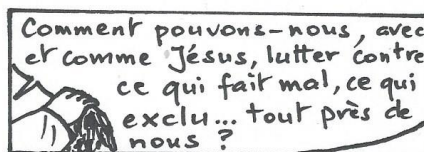 Comment pouvons-nous, avec
et comme Jésus, lutter contre
ce qui fait mal, ce qui
exclu... tout près de
nous ?